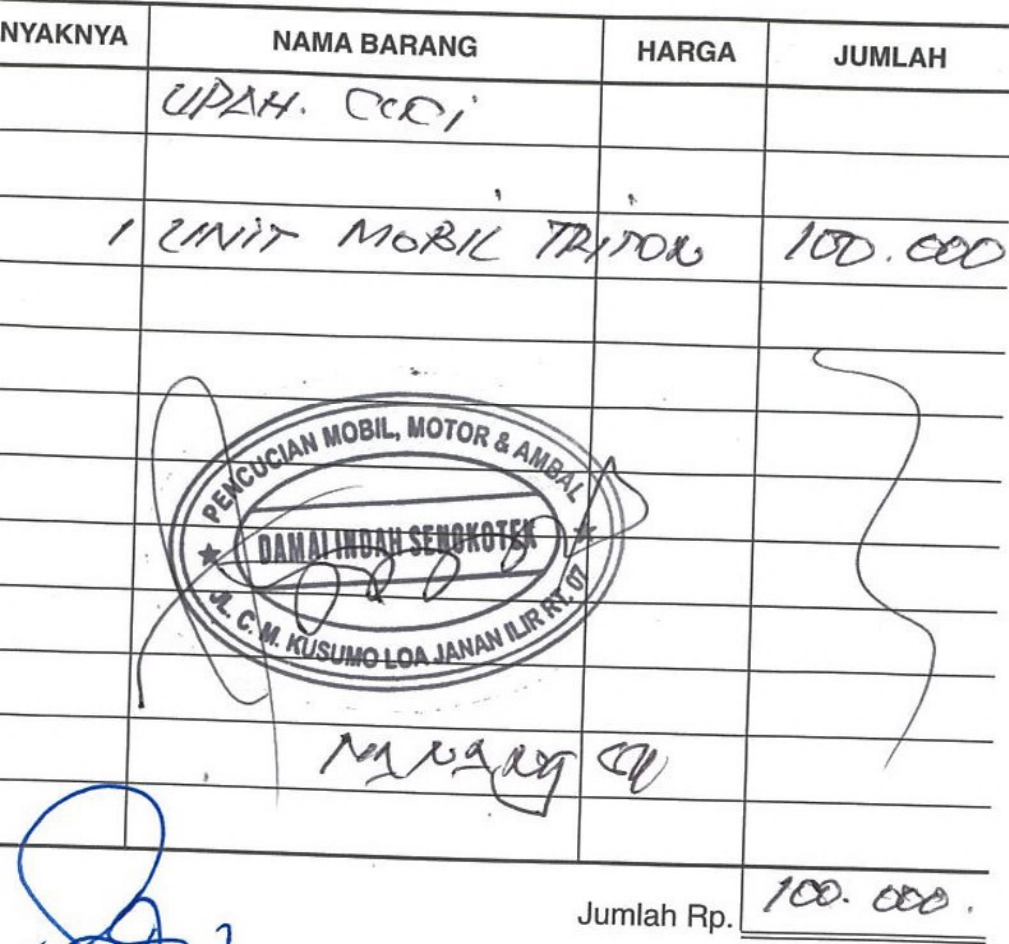 NYAKNYA NAMA BARANG HARGA JUMLAH
UPAH. CUCI
1 UNIT MOBIL TRITON 100.000
PENCUCIAN MOBIL, MOTOR & AMBAL
DAMAI INDAH SENGKOTEK
JL. C. M. KUSUMO LOA JANAN ILIR RT. 07
NANANG
Jumlah Rp. 100.000.